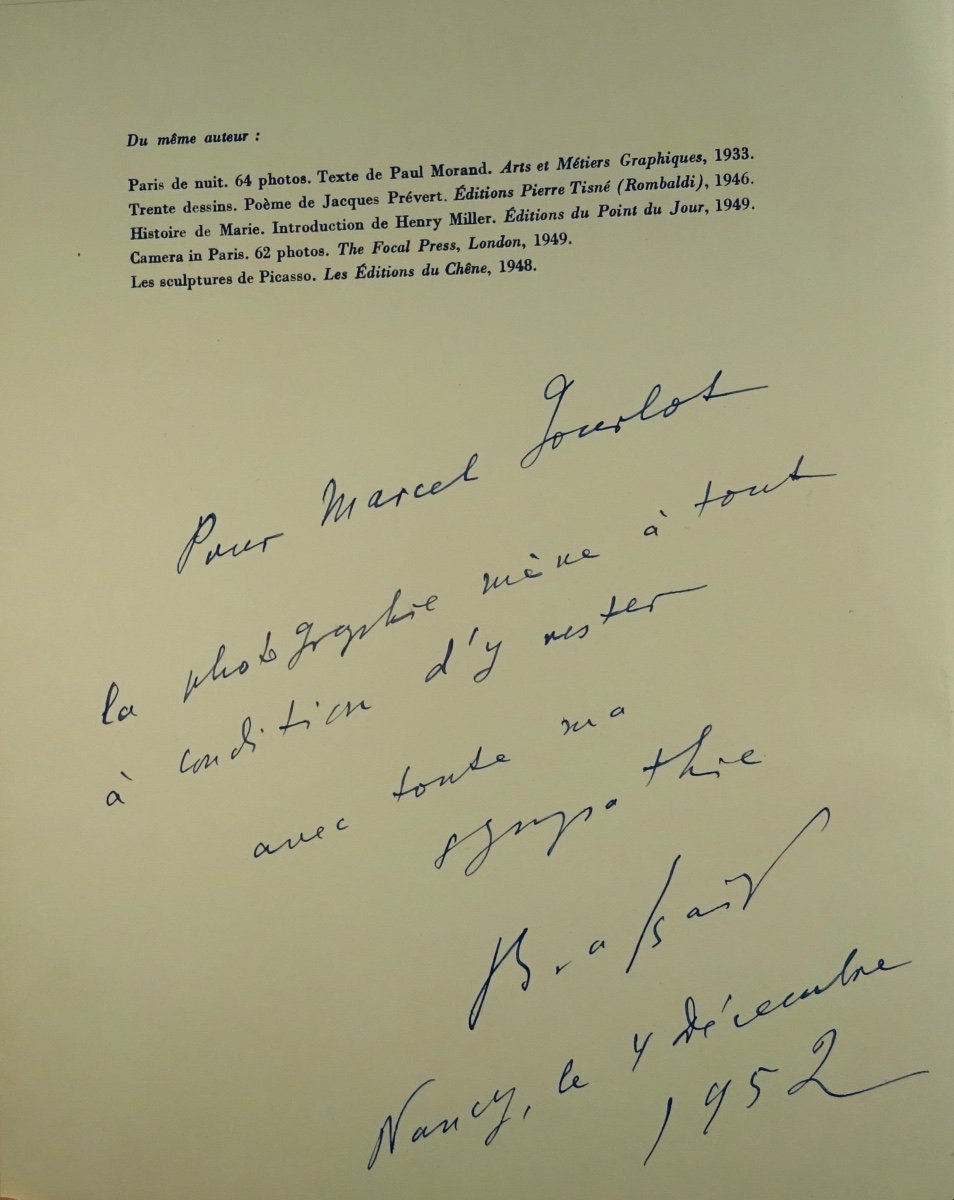 Du même auteur :
Paris de nuit. 64 photos. Texte de Paul Morand. Arts et Métiers Graphiques, 1933.
Trente dessins. Poème de Jacques Prévert. Éditions Pierre Tisné (Rombaldi), 1946.
Histoire de Marie. Introduction de Henry Miller. Éditions du Point du Jour, 1949.
Camera in Paris. 62 photos. The Focal Press, London, 1949.
Les sculptures de Picasso. Les Éditions du Chêne, 1948.
Pour Marcel Gourlot
la photographie mène à tout
à condition d'y rester
avec toute ma
sympathie
Brassaï
Nancy, le 4 Décembre
1952